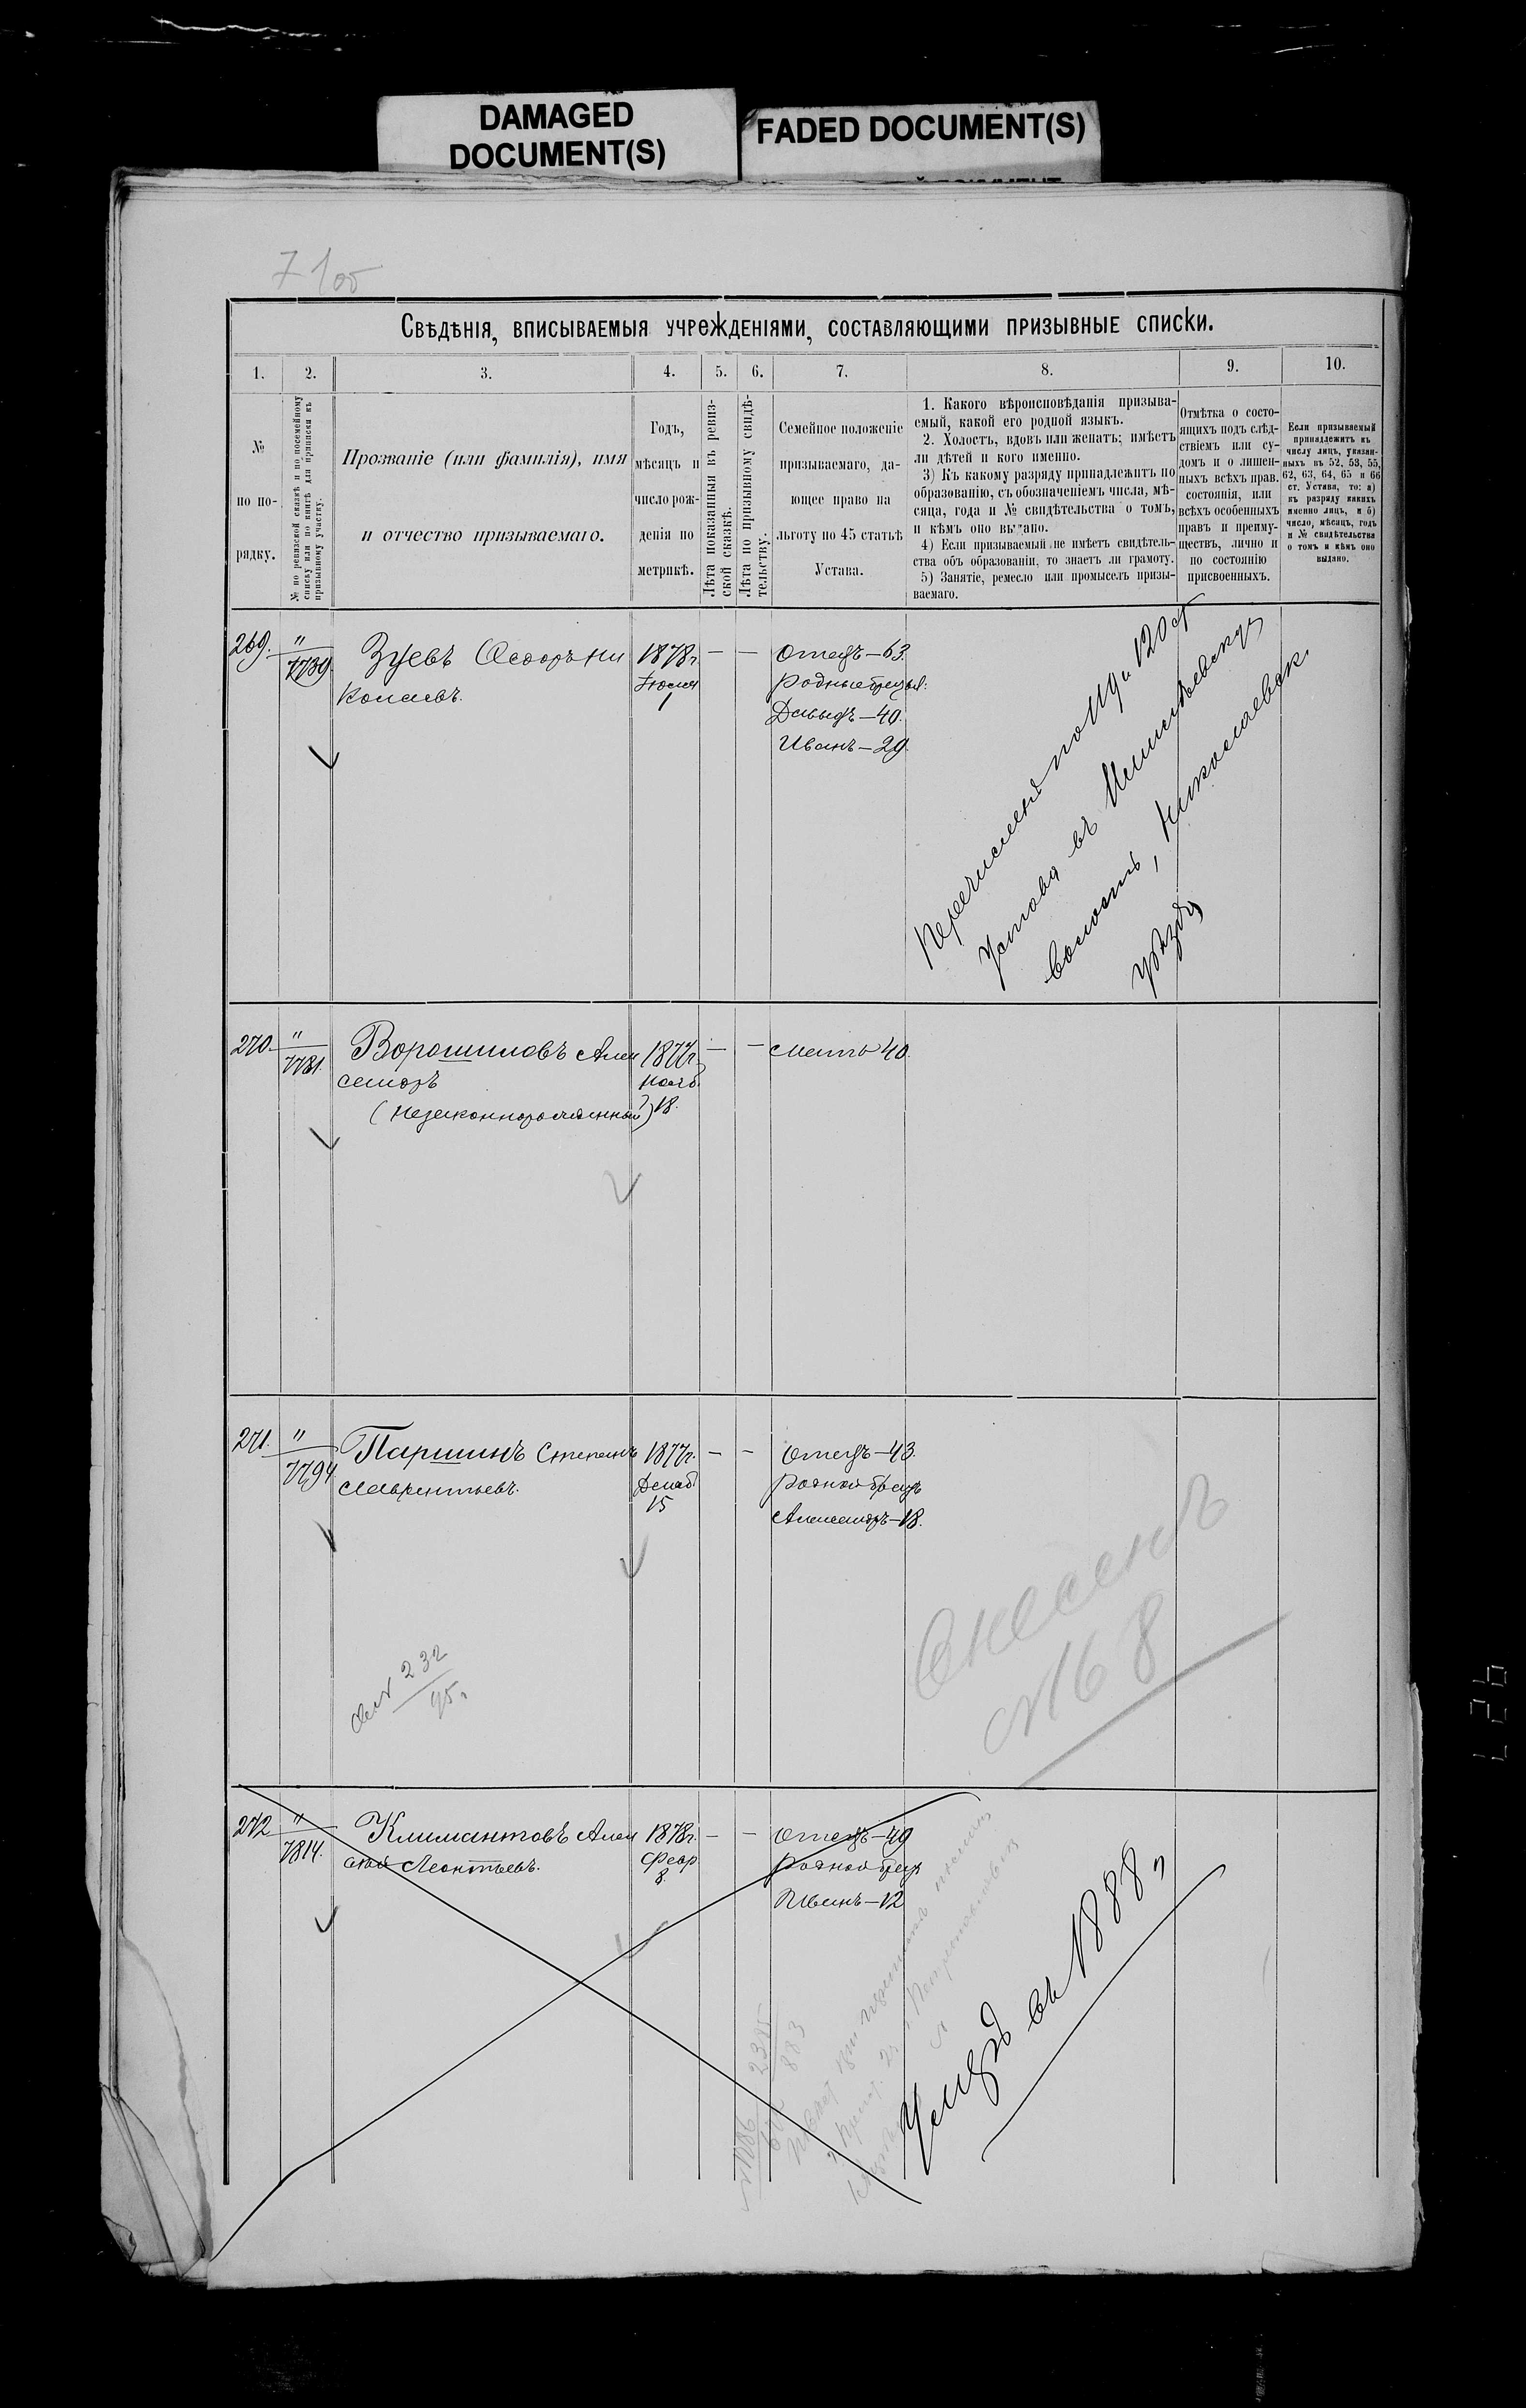 DAMAGED
DOCUMENT(S)
FADED DOCUMENT(S)
Свѣдѣнія, вписываемыя учрежденіями, составляющими призывные списки.
1. 2. 3. 4. 5. 6. 7. 8. 9. 10.
№
по по-
рядку.
№ по ревизской сказкѣ и по посемейному
списку или по книгѣ для приписки къ
призывному участку.
Прозваніе (или фамилія), имя
и отчество призываемаго.
Годъ,
мѣсяцъ и
число рож-
денія по
метрикѣ.
Лѣта показанныя въ ревиз-
ской сказкѣ.
Лѣта по призывному свидѣ-
тельству.
Семейное положеніе
призываемаго, да-
ющее право на
льготу по 45 статьѣ
Устава.
1. Какого вѣроисповѣданія призыва-
емый, какой его родной языкъ.
2. Холостъ, вдовъ или женатъ; имѣетъ
ли дѣтей и кого именно.
3) Къ какому разряду принадлежитъ по
образованію, съ обозначеніемъ числа, мѣ-
сяца, года и № свидѣтельства о томъ,
и кѣмъ оно выдано.
4) Если призываемый не имѣетъ свидѣтель-
ства объ образованіи, то знаетъ ли грамоту.
5) Занятіе, ремесло или промыселъ призы-
ваемаго.
Отмѣтка о состо-
ящихъ подъ слѣд-
ствіемъ или су-
домъ и о лишен-
ныхъ всѣхъ прав.
состоянія, или
всѣхъ особенныхъ
правъ и преиму-
ществъ, лично и
по состоянію
присвоенныхъ.
Если призываемый
принадлежитъ къ
числу лицъ, указан-
ныхъ въ 52, 53, 55,
62, 63, 64, 65 и 66
ст. Устава, то: а)
къ разряду какихъ
именно лицъ, и б)
число, мѣсяцъ, годъ
и № свидѣтельства
о томъ и кѣмъ оно
выдано.
269. " 7739. Зуевъ Ѳедоръ Ни
колаевъ.
1878г.
Іюня
1
— —
Отецъ—63.
Родные братья:
Давыдъ—40.
Иванъ—29.
Перечисленъ по 119 и 120 ст
Устава въ
волость, Николаевск.
уѣзда
270. " 7781. Ворошиловъ Алек
сандръ
(Незаконнорожденный)
1877г.
Нояб.
18.
— —
Мать 40.
271. " 7794 Паршинъ Степанъ
Лаврентьевъ.
1877г.
Декаб
15
— —
Отецъ—43.
Родной братъ
Александръ—18.
232
95г
Внесенъ
№ 8
272 " 7814. Климантовъ Алек
сѣй Леонтьевъ.
1878г.
Февр
8.
— —
Отецъ—49
Родной братъ
Иванъ—12
Умеръ въ 1888 г